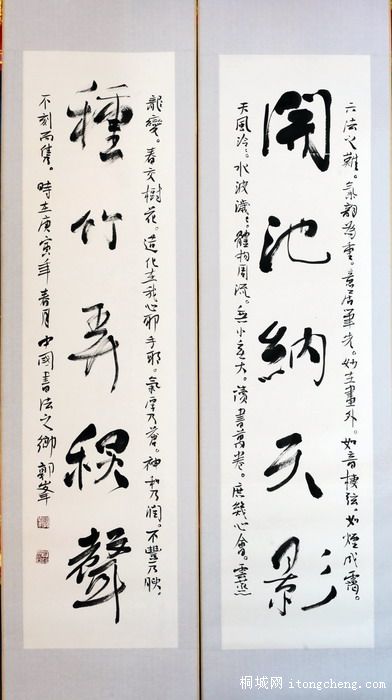 六法之難。氣韻為重。意居筆先。妙在畫外。如音棲弦。如煙成靄。
開池納天影
天風泠泠。水波濊濊。體物周流。無小無大。讀書萬卷。庶幾心會。雲蒸
龍變。春交樹花。造化在我心耶手耶。氣厚乃蒼。神和乃潤。不豐乃腴。
種竹弄秋聲
不刻而雋。時在庚寅年春月中國書法之鄉郭峯
桐城网 itongcheng.com